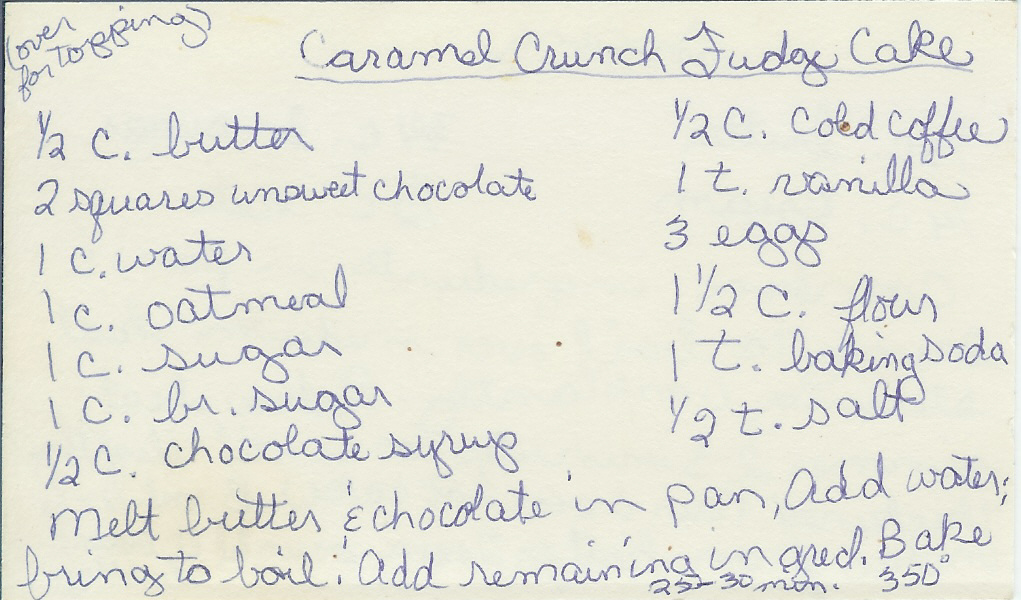 (over
for topping)
Caramel Crunch Fudge Cake
1/2 C. butter
2 squares unsweet chocolate
1 C. water
1 C. oatmeal
1 C. sugar
1 C. br. sugar
1/2 C. chocolate syrup
1/2 C. cold coffee
1 t. vanilla
3 eggs
1 1/2 C. flour
1 t. baking soda
1/2 t. salt
Melt butter & chocolate in pan, Add water;
bring to boil. Add remaining ingred. Bake
25-30 min. 350°